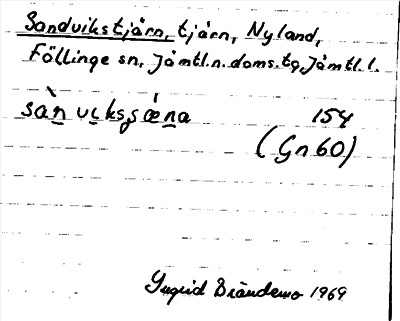 Sandvikstjärn, tjärn, Nyland,
Föllinge sn, Jämtl.n.doms.tg, Jämtl.l.
154
(Gn 60)
Ingrid Brändemo 1969